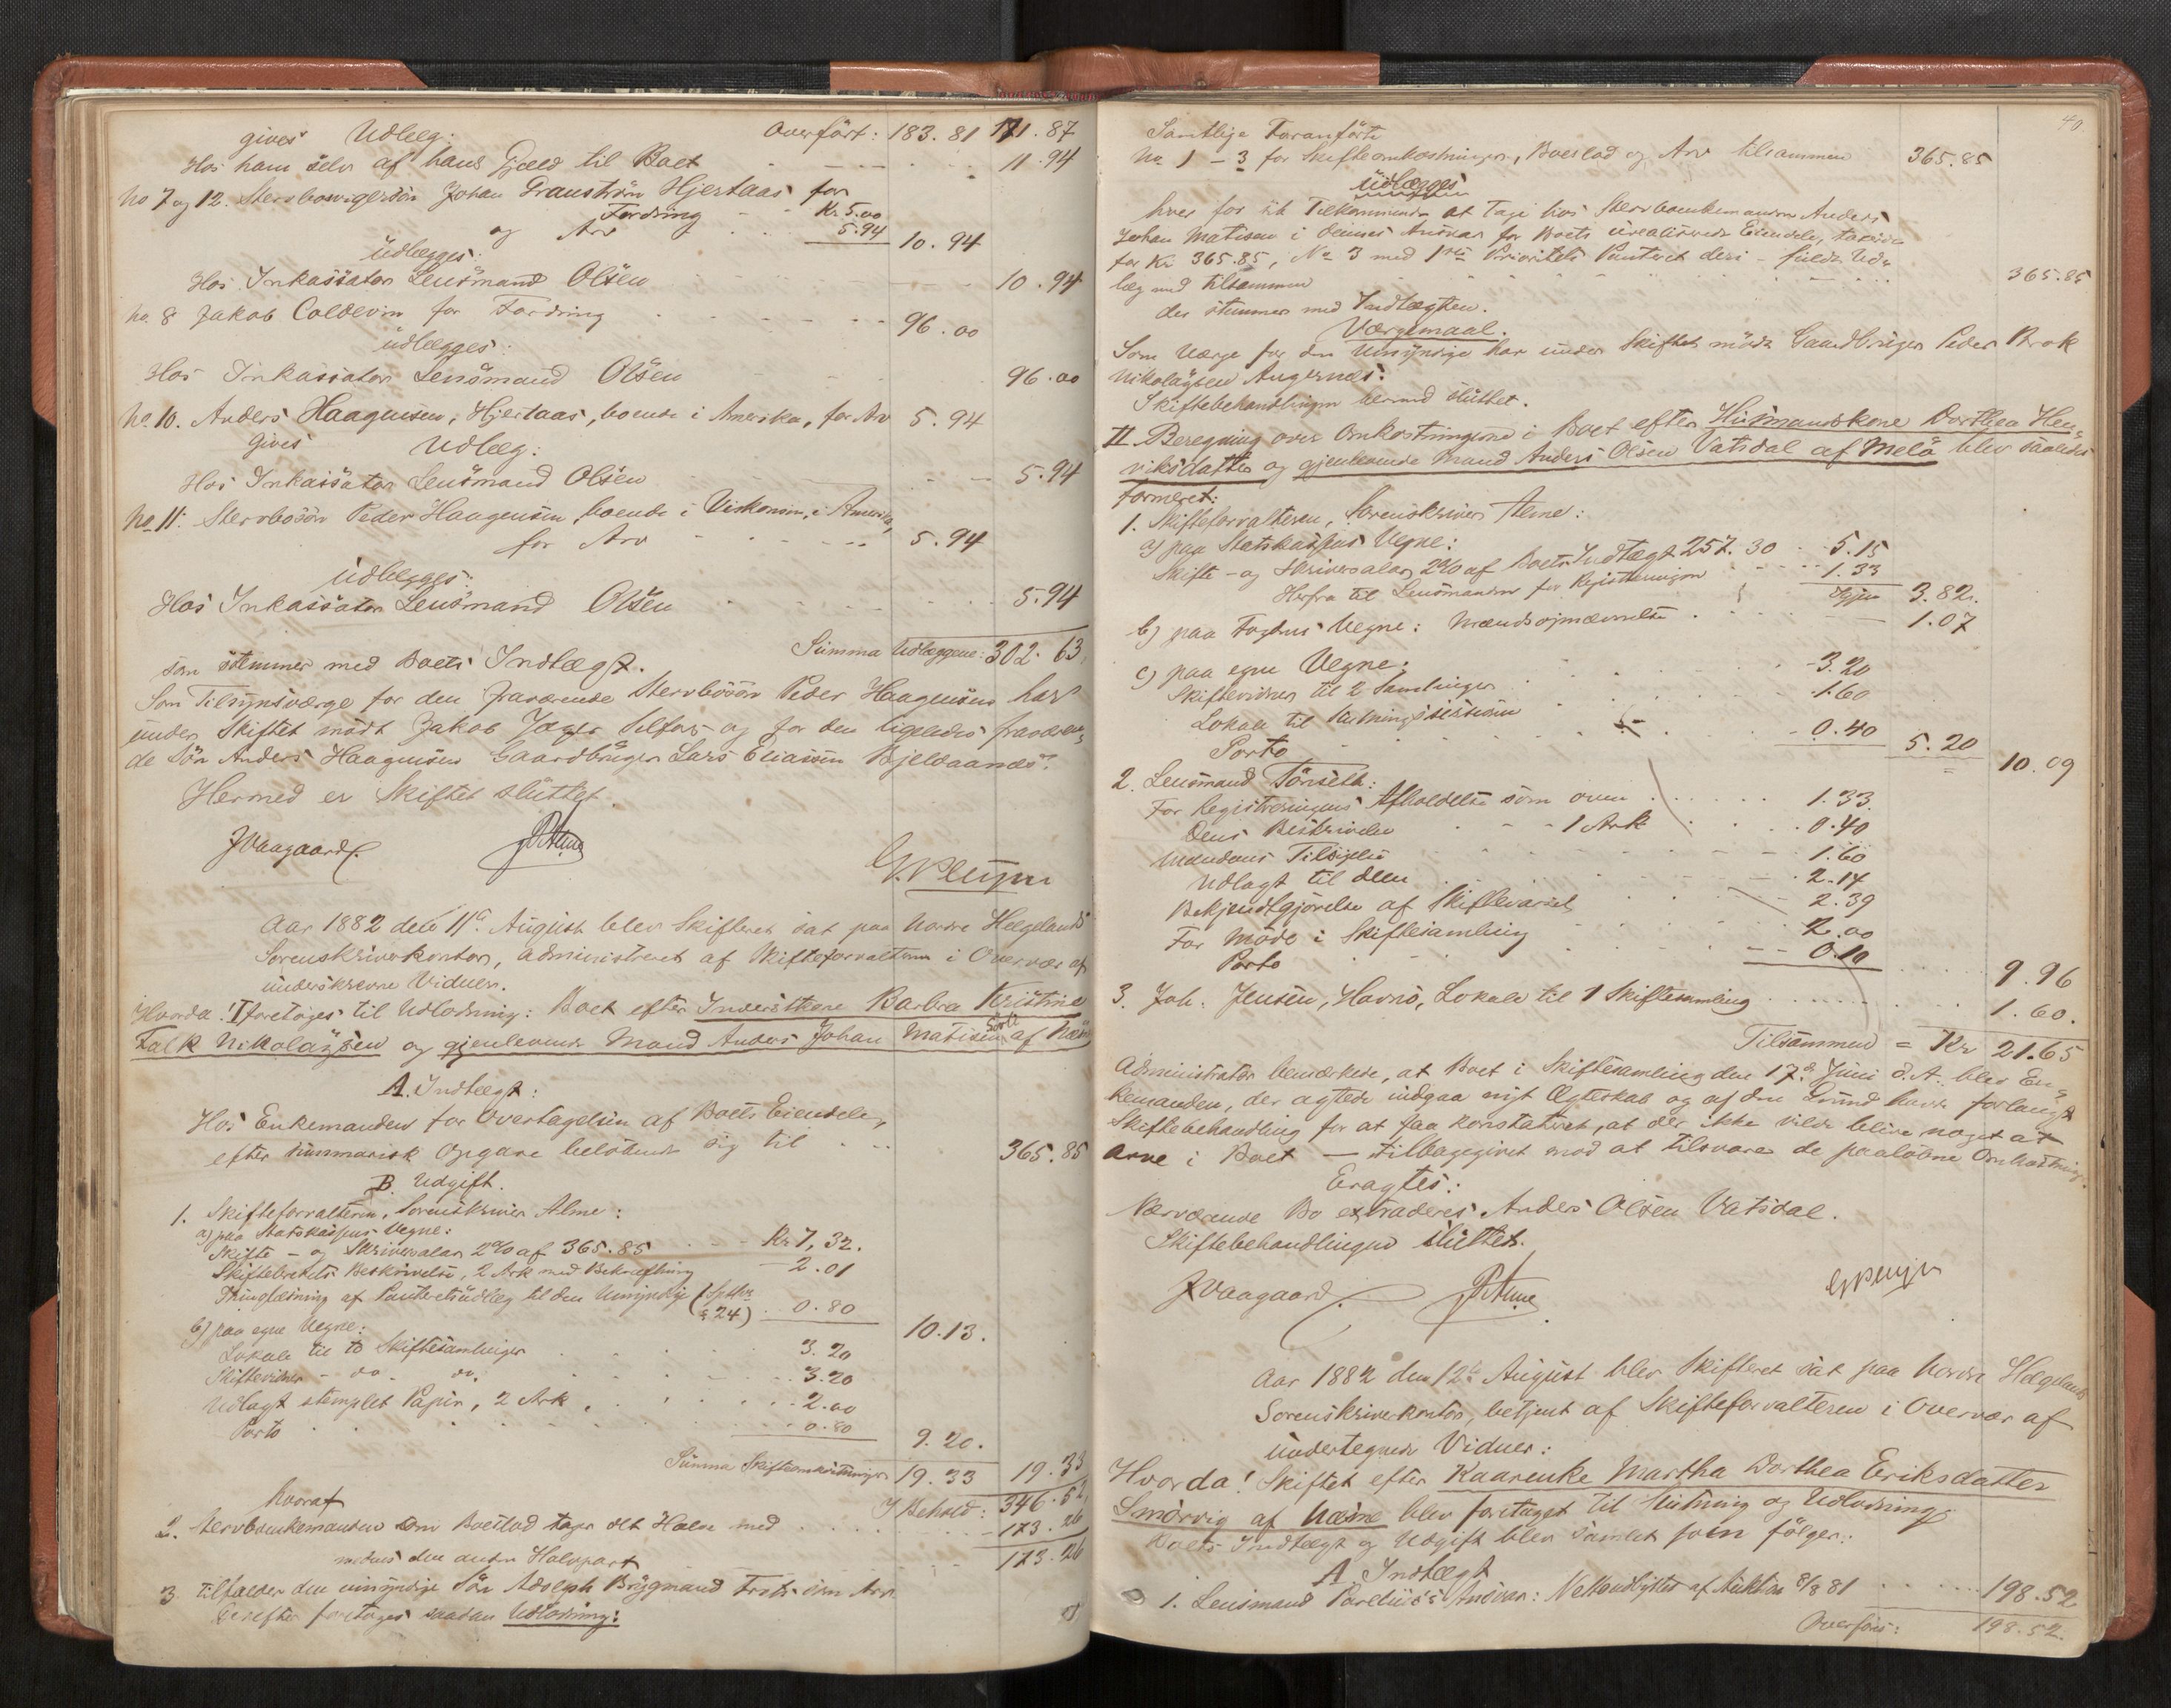 gives Udlæg: Overført: 183.81 171.87
Hos ham selv af hans Gjæld til Boet 11.94
No 7 og 12. Stervbosvigersön Johan Granström Hjertaas for
Fordring Kr. 5.00
og Arv 5.94 10.94
Udlægges:
Hos Inkassator Lensmand Olsen 10.94
No. 8 Jakob Coldevin for Fordring 96.00
udlægges:
Hos Inkassator Lensmand Olsen 96.00
No 10. Anders Haagensen, Hjertaas, boende i Amerika, for Arv 5.94
gives Udlæg:
Hos Inkassator Lensmand Olsen 5.94
No 11: Stervbosön Peder Haagensen, boende i Viskonsin, i Amerika,
for Arv 5.94
udlægges:
Hos Inkassator Lensmand Olsen 5.94
Summa Udlæggene: 302.63
som stemmer med Boets Indtægt.
Som Tilsynsværge for den fraværende Stervbosön Peder Haagensen har
under Skiftet mödt Jakob Jæger Selfors og for den ligeledes fraværen-
de Sön Anders Haagensen Gaardbruger Lars Eliassen Bjeldaanes.
Hermed er Skiftet sluttet.
J Vaagaard.
Aar 1882 den 11te August blev Skifteret sat paa Nordre Helgelands
Sorenskriverkontor, administreret af Skifteforvalteren i Overvær af
underskrevne Vidner.
Hvorda! I foretoges til Udlodning: Boet efter Inderstkone Barbra Kristine
Falk Nikolaysen og gjenlevende Mand Anders Johan Matisen af Næsne
A. Indtægt:
Hos Enkemanden for Overtagelsen af Boets Eiendele,
efter summarisk Opgave belöbende sig til 365.85
B. Udgift.
1. Skifteforvalteren, Sorenskriver Alme:
a) paa Statskassens Vegne:
Skifte- og Skriversalær 2% af 365.85 Kr 7,32.
Skiftebrevets Beskrivelse, 2 Ark med Bekræftning 2.01
Thinglæsning af Panteretsudlæg til den Umyndige (Sptlvs § 24) 0.80
10.13.
b) paa egne Vegne:
Lokale til to Skiftesamlinger 3.20
Skiftevidner - do. do. 3.20
Udlagt stemplet Papir, 2 Ark 2.00
Porto 0.80
9.20.
Summa Skifteomkostninger 19.33 19.33
I Behold: 346.52
hvoraf
2. Stervboenkemanden som Boeslod tager det Halve med 173.26
medens den anden Halvpart 173.26
3. tilfalder den umyndige Sön Adolph Brygmand som Arv.
Derefter foretoges saadan Udlodning:
40.
Samtlige Foranförte
No 1 - 3 for Skifteomkostninger, Boeslod og Arv tilsammen 365.85
udlægges
hver for sit Tilkommende at tage hos Stervboenkemanden Anders
Johan Matisen i dennes Ansvar for Boets urealiserede Eiendele, taxerede
for Kr 365.85, No 3 med 1ste Prioritets Panteret deri - fuldt Ud-
læg med tilsammen 365.85
der stemmer med Indtægten.
Værgemaal.
Som Værge for den Umyndige har under Skiftet mödt Gaardbruger Peder Brok
Nikolaysen Angersnæs.
Skiftebehandlingen hermed sluttet.
II. Beregning over Omkostningerne i Boet efter Husmandskone Dorthea Hen-
riksdatter og gjenlevende Mand Anders Olsen Vatsdal af Melö blev saaledes
formeret:
1. Skifteforvalteren, Sorenskriver Alme:
a) paa Statskassens Vegne:
Skifte- og Skriversalær, 2% af Boets Indtægt 257.30 5.15
Herfra til Lensmanden for Registreringen 1.33
Igjen 3.82.
b) paa Fogdens Vegne: Mændsopnævnelse 1.07
c) paa egne Vegne:
Skiftevidner til 2 Samlinger 3.20
Lokale til Slutningssessionen 1.60
Porto 0.40
5.20 10.09
2. Lensmand Tönseth:
For Registreringens Afholdelse som oven 1.33.
Dens Beskrivelse 1 Ark 0.40
Mændenes Tilsigelse 1.60
Udlagt til dem 2.14
Bekjendtgjörelse af Skiftevarsel 2.39
For Möde i Skiftesamling 2.00
Porto 0.10
9.96
3. Joh. Jensen, Havnö, Lokale til 1 Skiftesamling 1.60.
Tilsammen = Kr 21.65
Administrator bemærkede, at Boet i Skiftesamling den 17de Juni d.A. blev En-
kemanden, der agtede indgaa nyt Ægteskab og af den Grund havde forlangt
Skiftebehandling for at faa konstateret, at der ikke vilde blive noget at
arve i Boet - tilbagegivet mod at tilsvare de paalöbne Omkostninger.
Eragtes:
Nærværende Bo extraderes Anders Olsen Vatsdal.
Skiftebehandlingen sluttet.
J Vaagaard.
Aar 1882 den 12te August blev Skifteret sat paa Nordre Helgelands
Sorenskriverkontor, betjent af Skifteforvalteren i Overvær af
undertegnede Vidner:
Hvorda! Skiftet efter Kaarenke Martha Dorthea Eriksdatter
Smörvig af Næsne blev foretaget til Slutning og Udlodning.
Boets Indtægt og Udgift blev samlet som fölger:
A. Indtægt
1. Lensmand Parelius's Ansvar: Nettoudbyttet af Auktion 8/8 81 198.52
Overföres: 198.52.